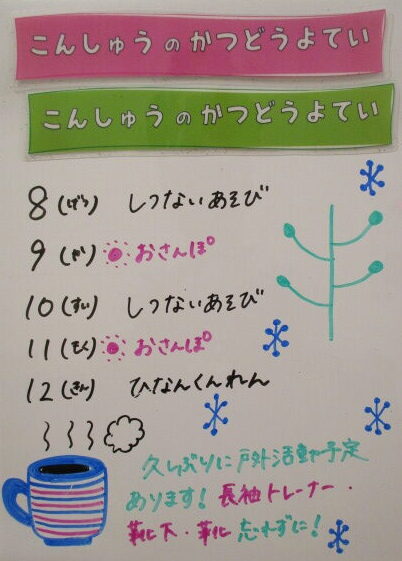 こんしゅうのかつどうよてい
こんしゅうのかつどうよてい
8(げつ) しつないあそび
9(か) おさんぽ
10(すい) しつないあそび
11(もく) おさんぽ
12(きん) ひなんくんれん
久しぶりに戸外活動予定
あります!長袖トレーナー・
靴下・靴忘れずに!